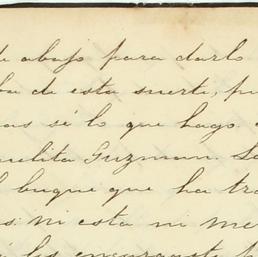 de abajo para darlo
ba de esta suerte, pu
as sé lo que hago.
uelita Guzman. Se
l buque que ha tra
s: ni esta ni me
les encargaste